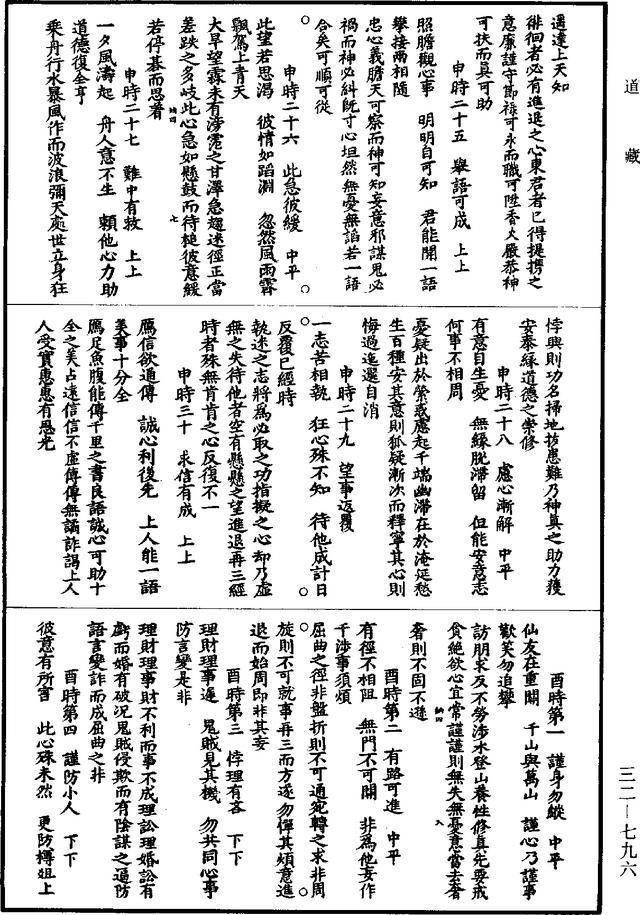 道藏
遇達上天知
徘徊者必有進退之心東君者已得提携之
意廉謹守節祿可永而職可陞香火嚴恭神
可扶而眞可助
申時二十五 舉語可成 上上
照膽觀心事 明明自可知 君能開一語
攀接兩相隨
忠心義膽天可察而神可知妄意邪謀鬼必
禍而神必糾旣寸心坦然無憂無諂若一語
合矣可順可從
申時二十六 此急彼緩 中平
此望若思渴 彼情如蹈淵 忽然風雨霽
飄駕上青天
大旱望霖未有滂霑之甘澤急趨迷徑正當
差跌之多岐此心急如懸鼓而待槌彼意緩
若停棊而思著
申時二十七 難中有救 上上
一夕風濤起 舟人意不生 賴他心力助
道德復全亨
乘舟行水暴風作而波浪彌天處世立身狂
悖興則功名掃地拔患難乃神眞之助力獲
安泰緣道德之崇修
申時二十八 慮心漸解 中平
有意自生憂 無緣脫滯留 但能安意志
何事不相周
憂疑出於縈惑慮起千端幽滯在於淹延愁
生百種安其意則狐疑漸次而釋寧其心則
悔過迤邐自消
申時二十九 望事返覆
一志苦相執 狂心殊不知 待他成計日
反覆已經時
執迷之志將爲必取之功指擬之心却乃虛
無之失待他者空有懸懸之望進退再三經
時者殊無肯肯之心反復不一
申時三十 求信有成 上上
鴈信欲通傳 誠心利後先 上人能一語
美事十分全
鴈足魚腹能傳千里之書良語誠心可助十
全之美占遠信信不虛傳傳無譎詐謁上人
人受實惠惠有恩光
酉時第一 謹身勿縱 中平
仙友在重關 千山與萬山 謹心乃謹事
歡笑勿追攀
訪朋求友不勞涉水登山養性修眞先要戒
貪絕欲心宜常謹謹則無失無憂意當去奢
奢則不固不遜
酉時第二 有路可進 中平
有徑不相阻 無門不可關 非爲他妄作
千涉事須煩
屈曲之徑非盤折則不可通宛轉之求非周
旋則不可就事再三而方遂勿憚其煩意進
退而始周即非其妄
酉時第三 悖理有吝 下下
理財理事違 鬼賊見其機 勿共同心事
防言變是非
理財理事財不利而事不成理訟理婚訟有
虧而婚有破況鬼賊侵欺而有陰謀之逼防
語言變詐而成屈曲之非
酉時第四 謹防小人 下下
彼意有所害 此心殊未然 更防樽俎上
三二—七九六